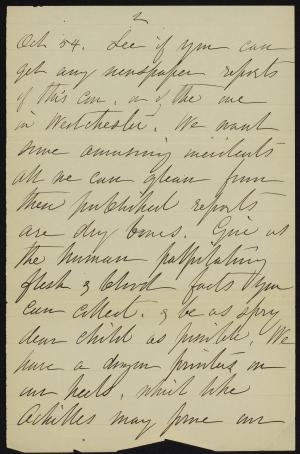 2
Oct 54. See if you can
get any newspaper reports
of this Con. and the one
in Westchester. We want
some amusing incidents
all we can glean from
their published reports
are dry bones. Give us
the human palpitating
flesh & blood facts you
can collect. & be as spry
dear child as possible. We
have a dozen printers on
our heels, which like
Achilles may prove our